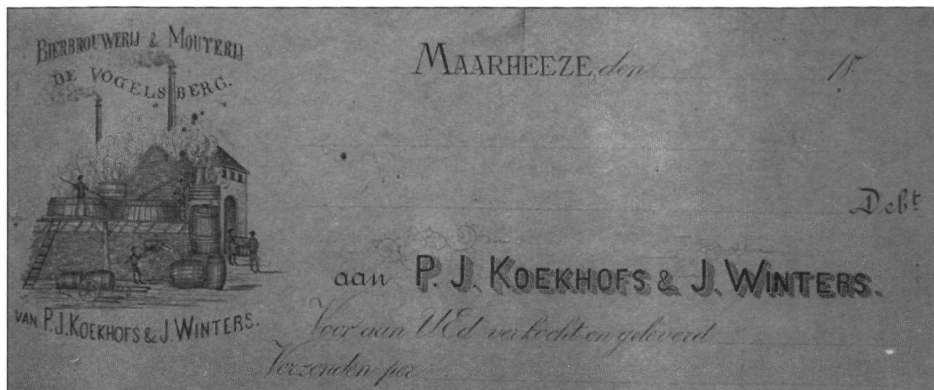 BIERBROUWERIJ & MOUTERIJ
DE VOGELSBERG.
VAN P.J. KOEKHOFS & J. WINTERS.
MAARHEEZE, den 18
Debt
aan P. J. KOEKHOFS & J. WINTERS.
Voor aan UEd verkocht en geleverd
Verzonden per